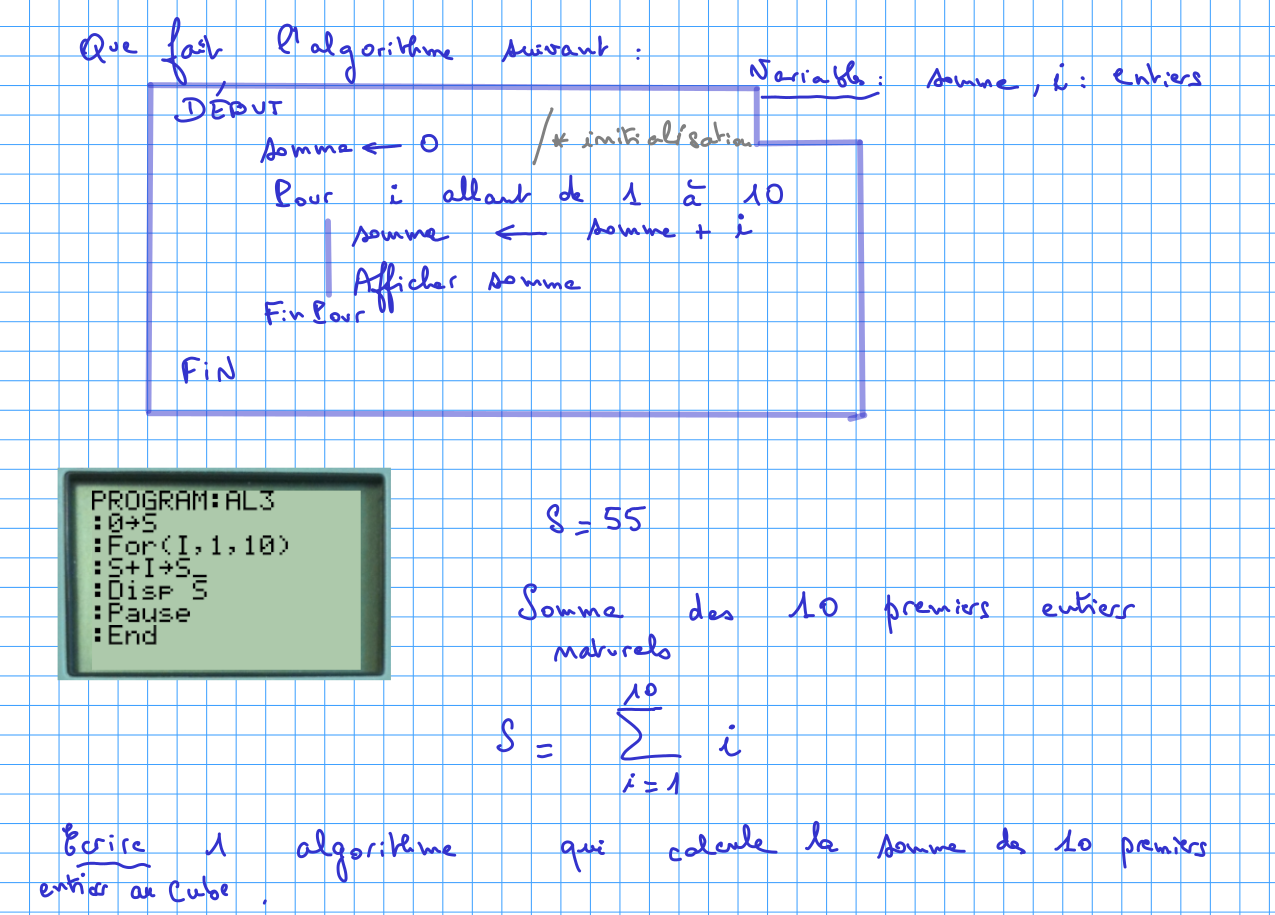 Que fait l'algorithme suivant :
Variable : somme, i : entiers
DÉBUT
somme ← 0 /* initialisation
Pour i allant de 1 à 10
somme ← somme + i
Afficher somme
Fin Pour
FiN
PROGRAM:AL3
:0→S
:For(I,1,10)
:S+I→S_
:Disp S
:Pause
:End
S = 55
Somme des 10 premiers entiers
naturels
10
S = ∑ i
i = 1
Ecrire 1 algorithme qui calcule la somme des 10 premiers
entier au cube.